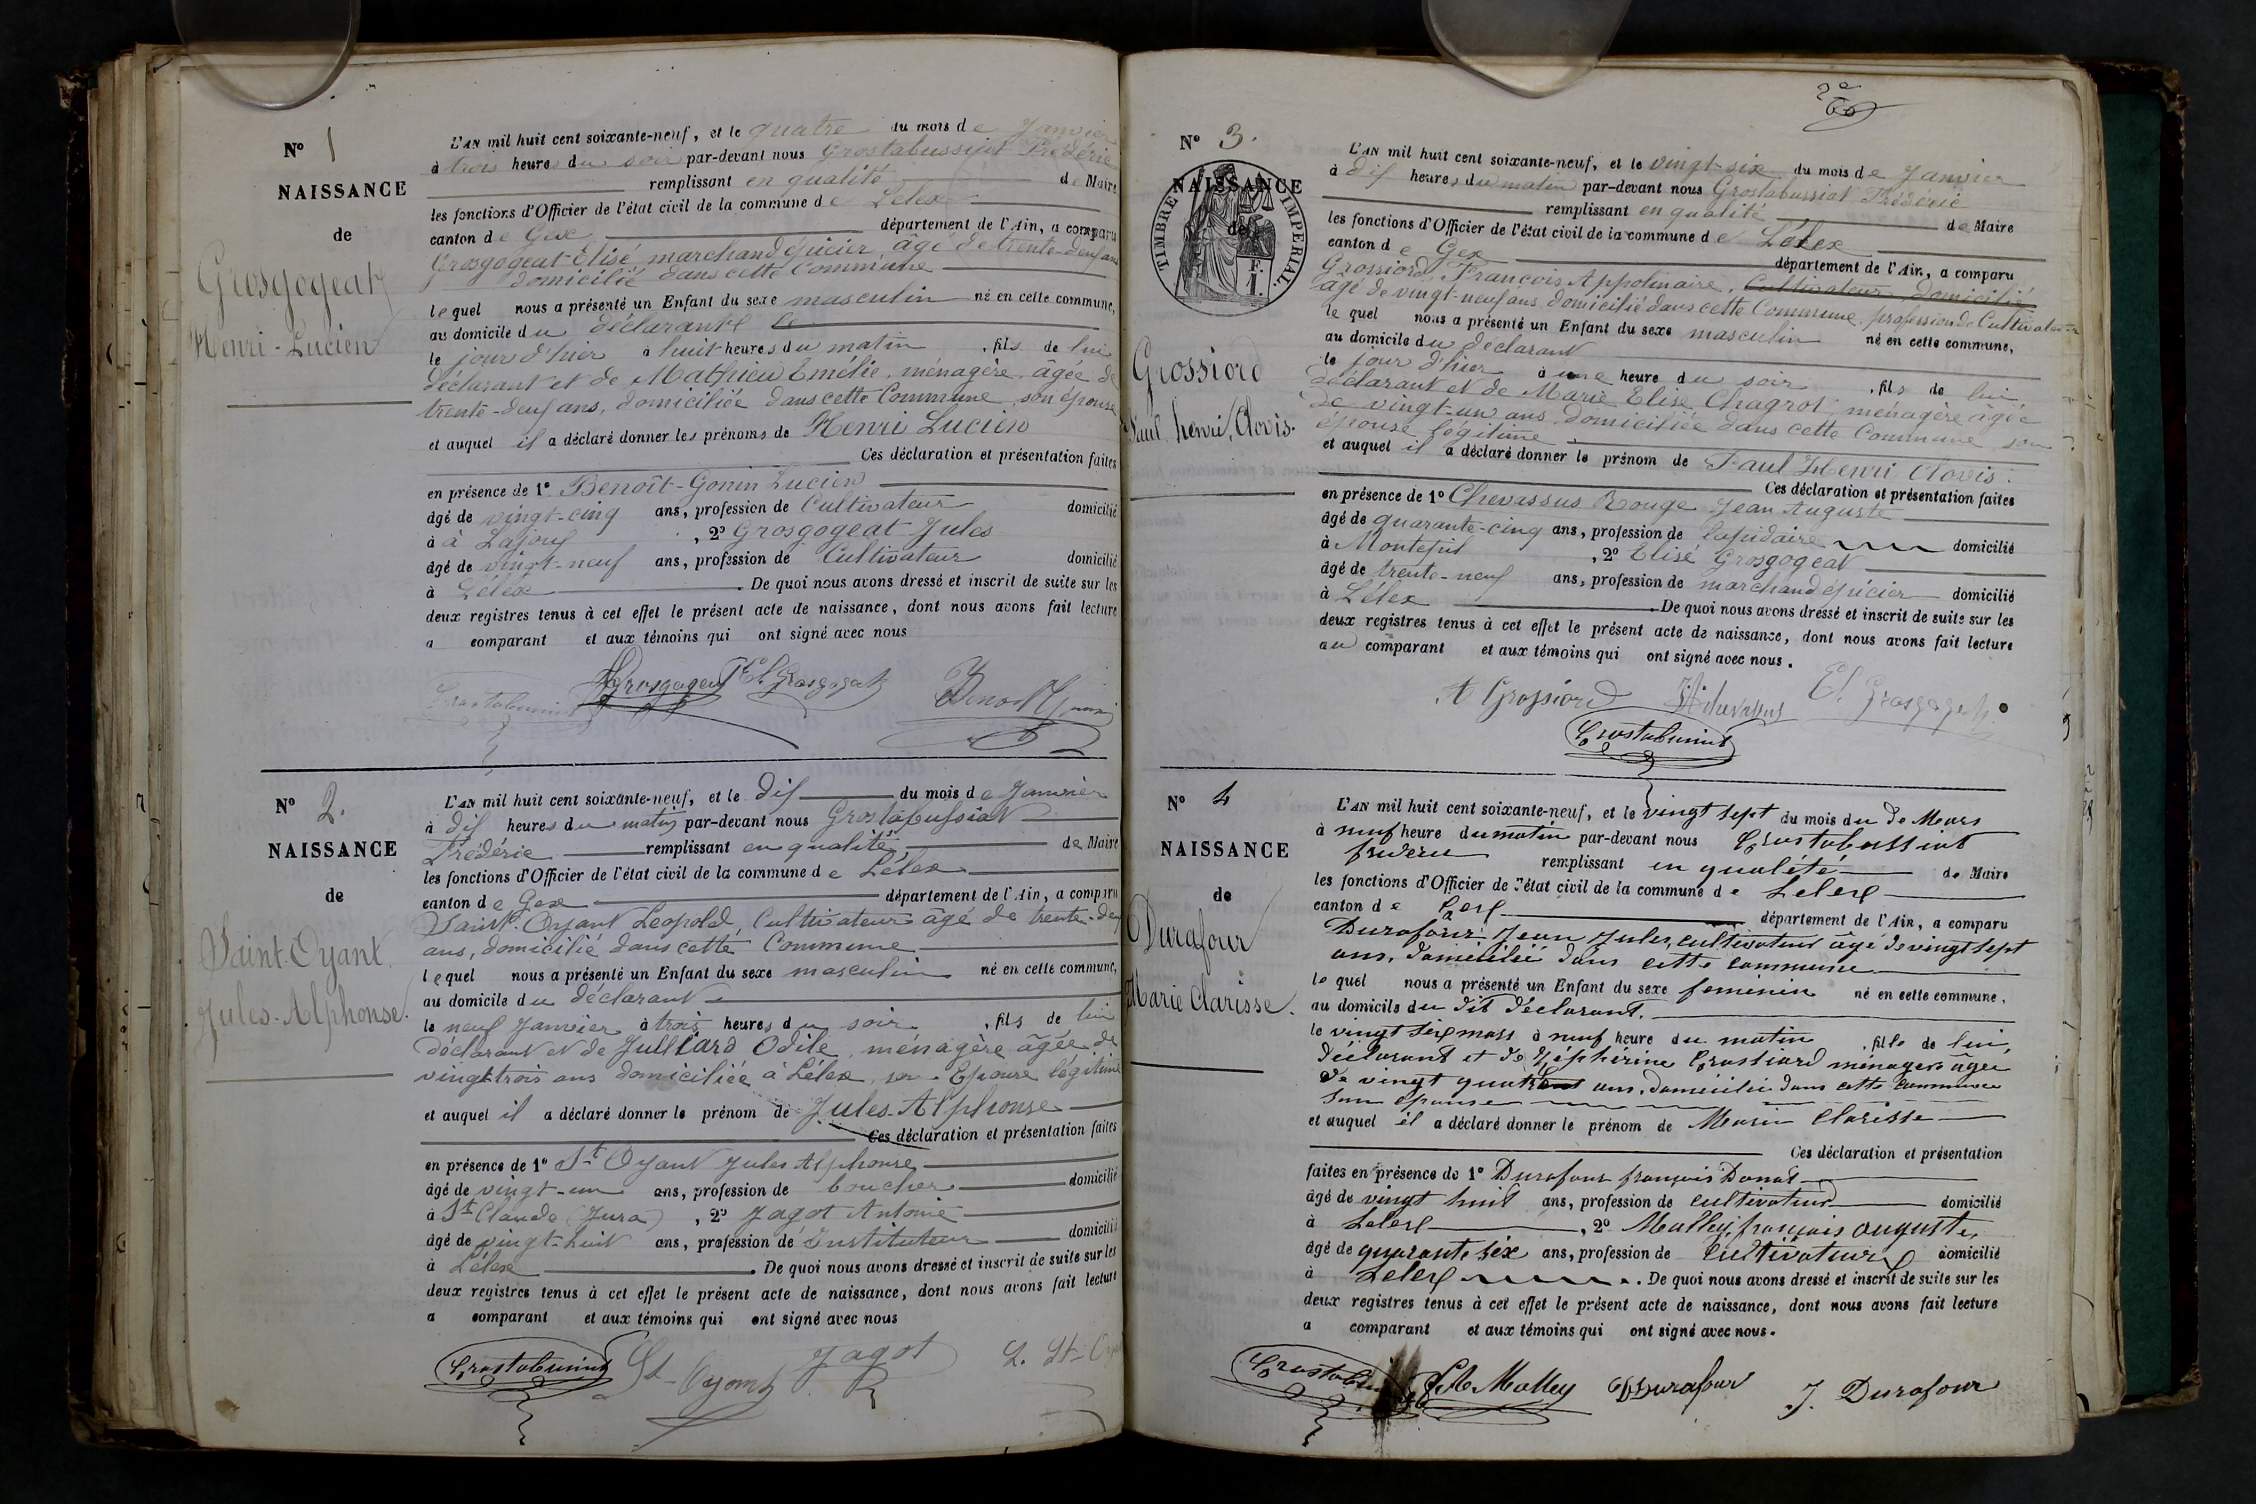 N° 1
NAISSANCE
de
Grosgogeat
Henri-Lucien
L'AN mil huit cent soixante-neuf, et le quatre du mois de Janvier
à trois heures du soir par-devant nous Grostabussiat Frédéric
remplissant en qualité de Maire
les fonctions d'Officier de l'état civil de la commune de Lélex
canton de Gex département de l'Ain, a comparu
Grosgogeat Elisé marchand épicier, âgé de trente-deux ans
domicilié dans cette Commune
lequel nous a présenté un Enfant du sexe masculin né en cette commune,
au domicile du déclarant
le jour d'hier à huit heures du matin, fils de lui
déclarant et de Mathieu Emélie, ménagère, âgée de
trente-deux ans, domiciliée dans cette Commune, son épouse
et auquel il a déclaré donner les prénoms de Henri Lucien
Ces déclaration et présentation faites
en présence de 1° Benoît-Gonin Lucien
âgé de vingt-cinq ans, profession de Cultivateur domicilié
à à Lajoux, 2° Grosgogeat Jules
âgé de vingt-neuf ans, profession de Cultivateur domicilié
à Lélex. De quoi nous avons dressé et inscrit de suite sur les
deux registres tenus à cet effet le présent acte de naissance, dont nous avons fait lecture
a comparant et aux témoins qui ont signé avec nous
Grostabussiat Grosgogeat El. Grosgogeat Benoit Gonin
N° 2.
NAISSANCE
de
Saint-Oyant
Jules-Alphonse.
L'AN mil huit cent soixante-neuf, et le dix du mois de Janvier
à dix heures du matin par-devant nous Grostabussiat
Frédéric remplissant en qualité de Maire
les fonctions d'Officier de l'état civil de la commune de Lélex
canton de Gex département de l'Ain, a comparu
Saint-Oyant Leopold, Cultivateur âgé de trente-deux
ans, domicilié dans cette Commune
lequel nous a présenté un Enfant du sexe masculin né en cette commune,
au domicile du déclarant
le neuf Janvier à trois heures du soir, fils de lui
déclarant et de Julliard Odile, ménagère âgée de
vingt-trois ans domiciliée à Lélex, son Epouse légitime
et auquel il a déclaré donner le prénom de Jules-Alphonse
Ces déclaration et présentation faites
en présence de 1° St Oyant Jules Alphonse
âgé de vingt-un ans, profession de boucher domicilié
à St Claude (Jura), 2° Jagot Antoine
âgé de vingt-huit ans, profession de Instituteur domicilié
à Lélex. De quoi nous avons dressé et inscrit de suite sur les
deux registres tenus à cet effet le présent acte de naissance, dont nous avons fait lecture
a comparant et aux témoins qui ont signé avec nous
Grostabussiat St-Oyant Jagot L. St-Oyant
N° 3.
TIMBRE IMPERIAL
F.
1.
NAISSANCE
de
Grossiord
Paul, henri, Clovis.
L'AN mil huit cent soixante-neuf, et le vingt-six du mois de Janvier
à dix heures du matin par-devant nous Grostabussiat Frédéric
remplissant en qualité de Maire
les fonctions d'Officier de l'état civil de la commune de Lélex
canton de Gex département de l'Ain, a comparu
Grossiord François Appolinaire, Cultivateur, domicilié
âgé de vingt-neuf ans domicilié dans cette Commune, profession de Cultivateur
le quel nous a présenté un Enfant du sexe masculin né en cette commune,
au domicile du déclarant
le jour d'hier à une heure du soir, fils de lui
déclarant et de Marie Elise Chagrot, ménagère âgée
de vingt-un ans domiciliée dans cette Commune son
épouse légitime
et auquel il a déclaré donner le prénom de Paul Henri Clovis.
Ces déclaration et présentation faites
en présence de 1° Chevassus Rouge Jean Auguste
âgé de quarante-cinq ans, profession de lapidaire domicilié
à Montépil, 2° Elisé Grosgogeat
âgé de trente-neuf ans, profession de marchand épicier domicilié
à Lélex. De quoi nous avons dressé et inscrit de suite sur les
deux registres tenus à cet effet le présent acte de naissance, dont nous avons fait lecture
au comparant et aux témoins qui ont signé avec nous.
A Grossiord Chevassus El. Grosgogeat
Grostabussiat
N° 4
NAISSANCE
de
Durafour
Marie Clarisse.
L'AN mil huit cent soixante-neuf, et le vingt sept du mois du de Mars
à neuf heure du matin par-devant nous Grostabussiat
frederic remplissant en qualété de Maire
les fonctions d'Officier de l'état civil de la commune de Lelex
canton de Gex département de l'Ain, a comparu
Durafour Jean Jules, cultivateur âgé de vingt sept
ans, domicilié dans cette commune
le quel nous a présenté un Enfant du sexe femenin né en cette commune,
au domicile du dit déclarant.
le vingt six mars à neuf heure du matin, fille de lui,
déclarant et de Zéphérine Grossiard ménagère âgée
de vingt quatre ans, domiciliée dans cette commune
son épouse
et auquel il a déclaré donner le prénom de Marie Clarisse
Ces déclaration et présentation
faites en présence de 1° Durafour françois Donat
âgé de vingt huit ans, profession de cultivateur domicilié
à Lelex, 2° Malley, françois auguste,
âgé de quarante six ans, profession de Cultivateur domicilié
à Lelex. De quoi nous avons dressé et inscrit de suite sur les
deux registres tenus à cet effet le présent acte de naissance, dont nous avons fait lecture
a comparant et aux témoins qui ont signé avec nous.
Malley Durafour J. Durafour